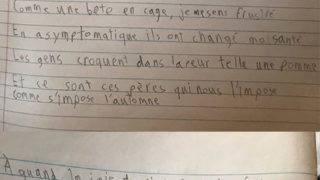 Comme une bete en cage, je me sens frustré
En asymptomatique ils ont changé ma santé
Les gens croquent dans la cœur telle une pomme
Et ce sont ces pères qui nous l'impose
comme s'impose l'automne
A quand la joie